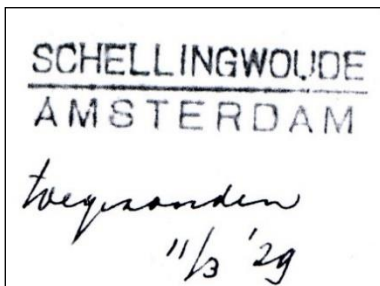 SCHELLINGWOUDE
AMSTERDAM
toegezonden
11/3 '29